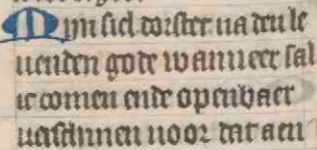 Myn siel dorstet na den le
uenden gode wanneer sal
ic comen ende openbaer
uerschinen uoor dat aen